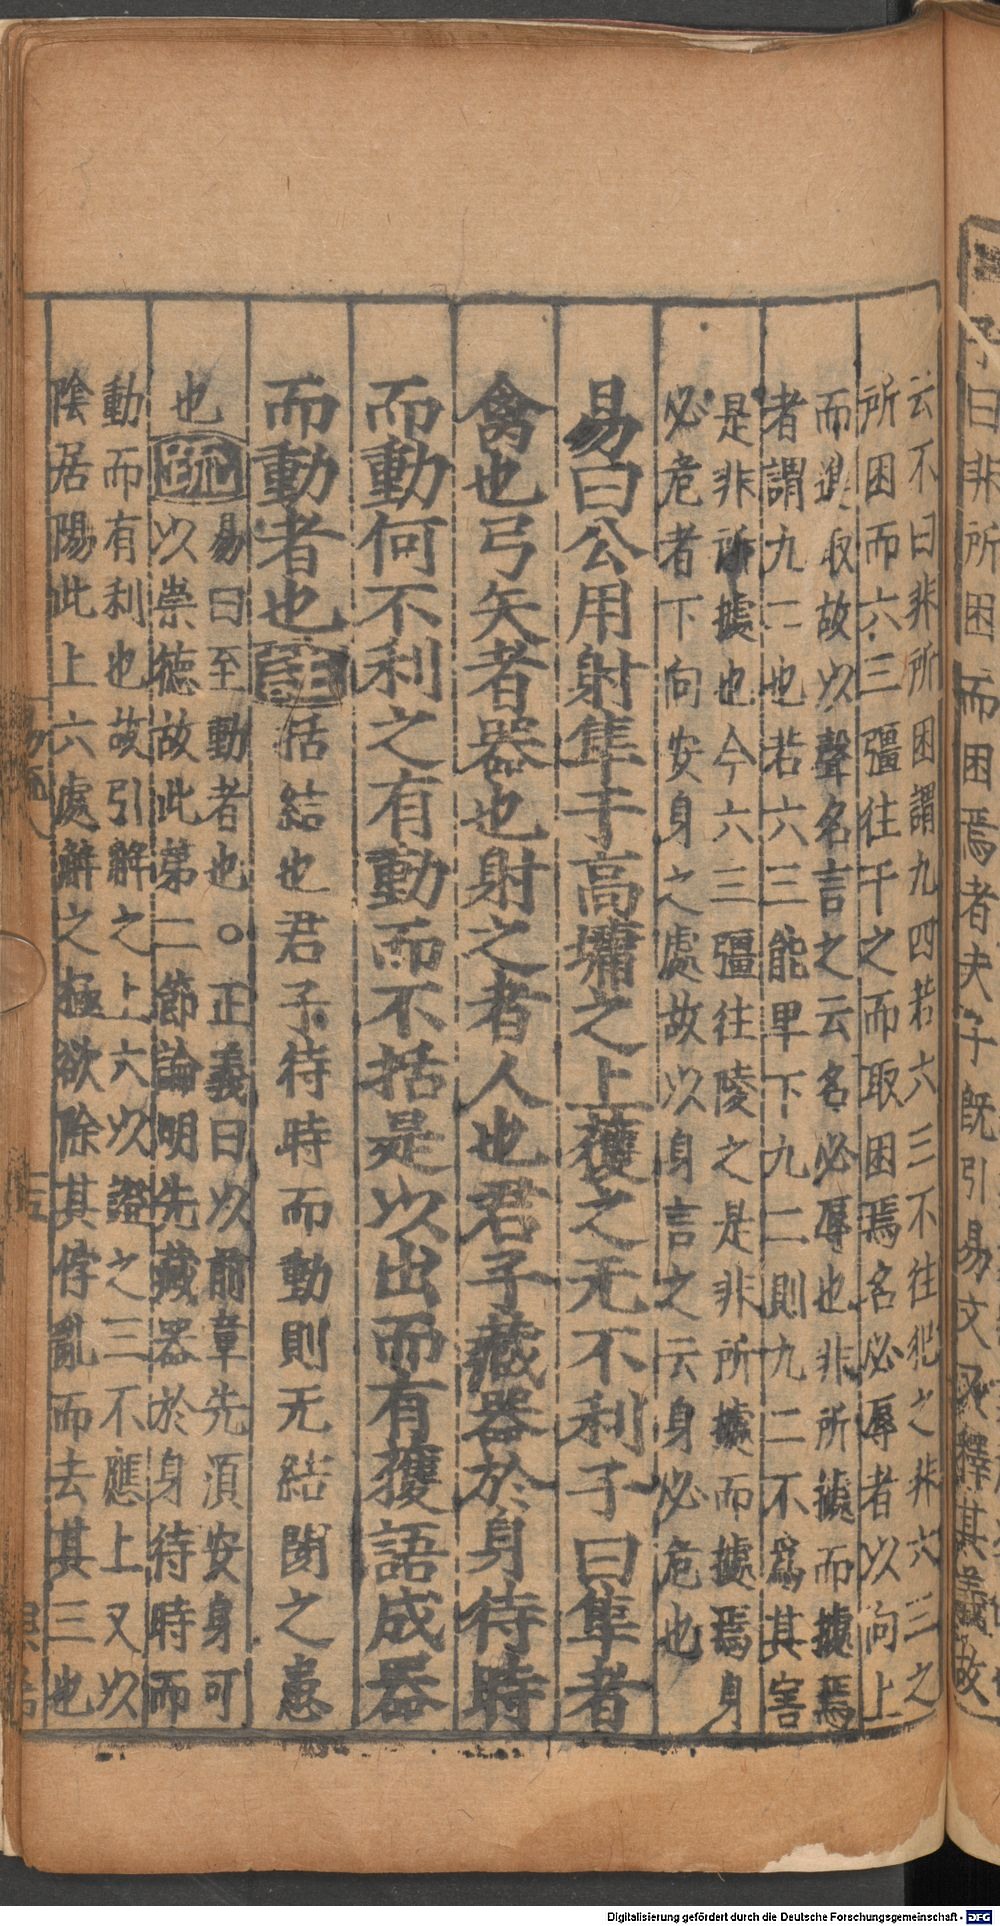 云不曰非所困謂九四若六三不往犯之非六三之
所困而六三彊往干之而取困焉名必辱者以向上
而進取故以聲名言之云名必辱也非所據而據焉
者謂九二也若六三能卑下九二則九二不為其害
是非所據也今六三彊往陵之是非所據而據焉身
必危者下向安身之處故以身言之云身必危也
易曰公用射隼于高墉之上獲之无不利子曰隼者
禽也弓矢者器也射之者人也君子藏器於身待時
而動何不利之有動而不括是以出而有獲語成器
而動者也
註
括結也君子待時而動則无結閡之患
也
疏
易曰至動者也○正義曰以前章先須安身可
以崇德故此第二節論明先藏器於身待時而
動而有利也故引解之上六以證之三不應上又以
陰居陽此上六處解之極欲除其悖亂而去其三也
子曰非所困而困焉者夫子既引易文又釋其義故
Digitalisierung gefördert durch die Deutsche Forschungsgemeinschaft - DFG